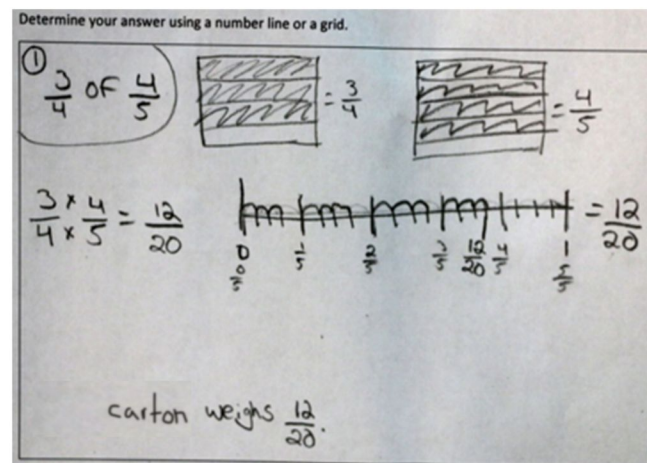 Determine your answer using a number line or a grid.
① 3/4 of 4/5
= 3/4
= 4/5
3/4 × 4/5 = 12/20
= 12/20
0 1/5 2/5 3/5 12/20 4/5 1
0/5 5/5
carton weighs 12/20.